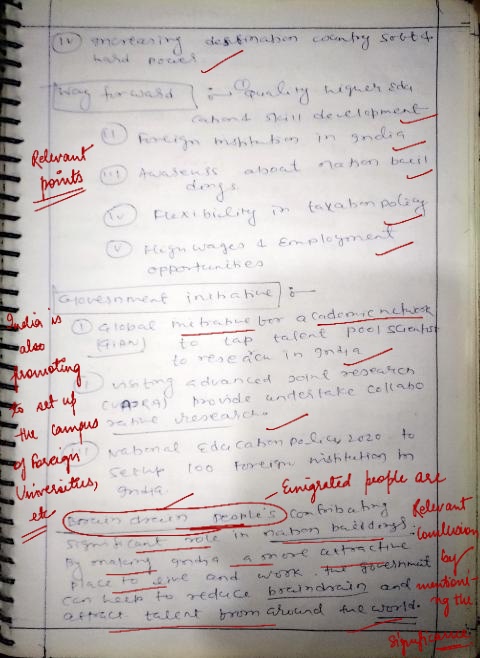 iv) Increasing destination country soft &
hard power
Way forward :- (i) Quality higher edu
cation & skill development
ii) Foreign institution in India
iii) Awareness about nation buil
dings
iv) Flexibility in taxation policy
v) High wages & Employment
opportunities
Relevant
points
Government initiative :-
i) Global initiative for academic network
(GIAN) to tap talent pool scientist
to reseach in India
ii) visiting advanced joint research
(VAJRA) provide undertake collabo
rative research.
iii) National Education policy, 2020 to
setup 100 foreign institution in
India
India is
also
promoting
to set up
the campus
of foreign
Universities,
etc
Emigrated people are
Brain drain people's contributing
significant role in nation buildings.
By making India a more attractive
place to live and work. the government
can help to reduce braindrain and
attract talent from around the world.
Relevant
Conclusion
by
mentioni-
ng the
significance